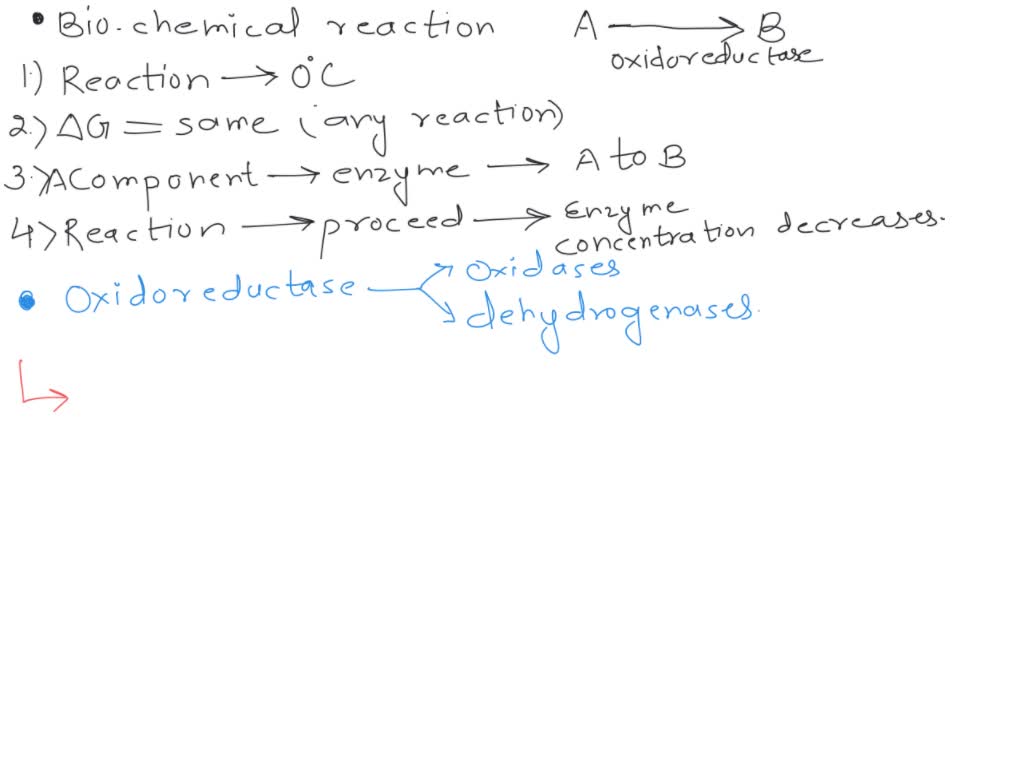 • Bio.chemical reaction A → B
oxidoreductase
1.) Reaction → 0°C
2.) ΔG = same (any reaction)
3.) A Component → enzyme → A to B
4.) Reaction → proceed → Enzyme
concentration decreases.
• Oxidoreductase → oxidases
→ dehydrogenases.